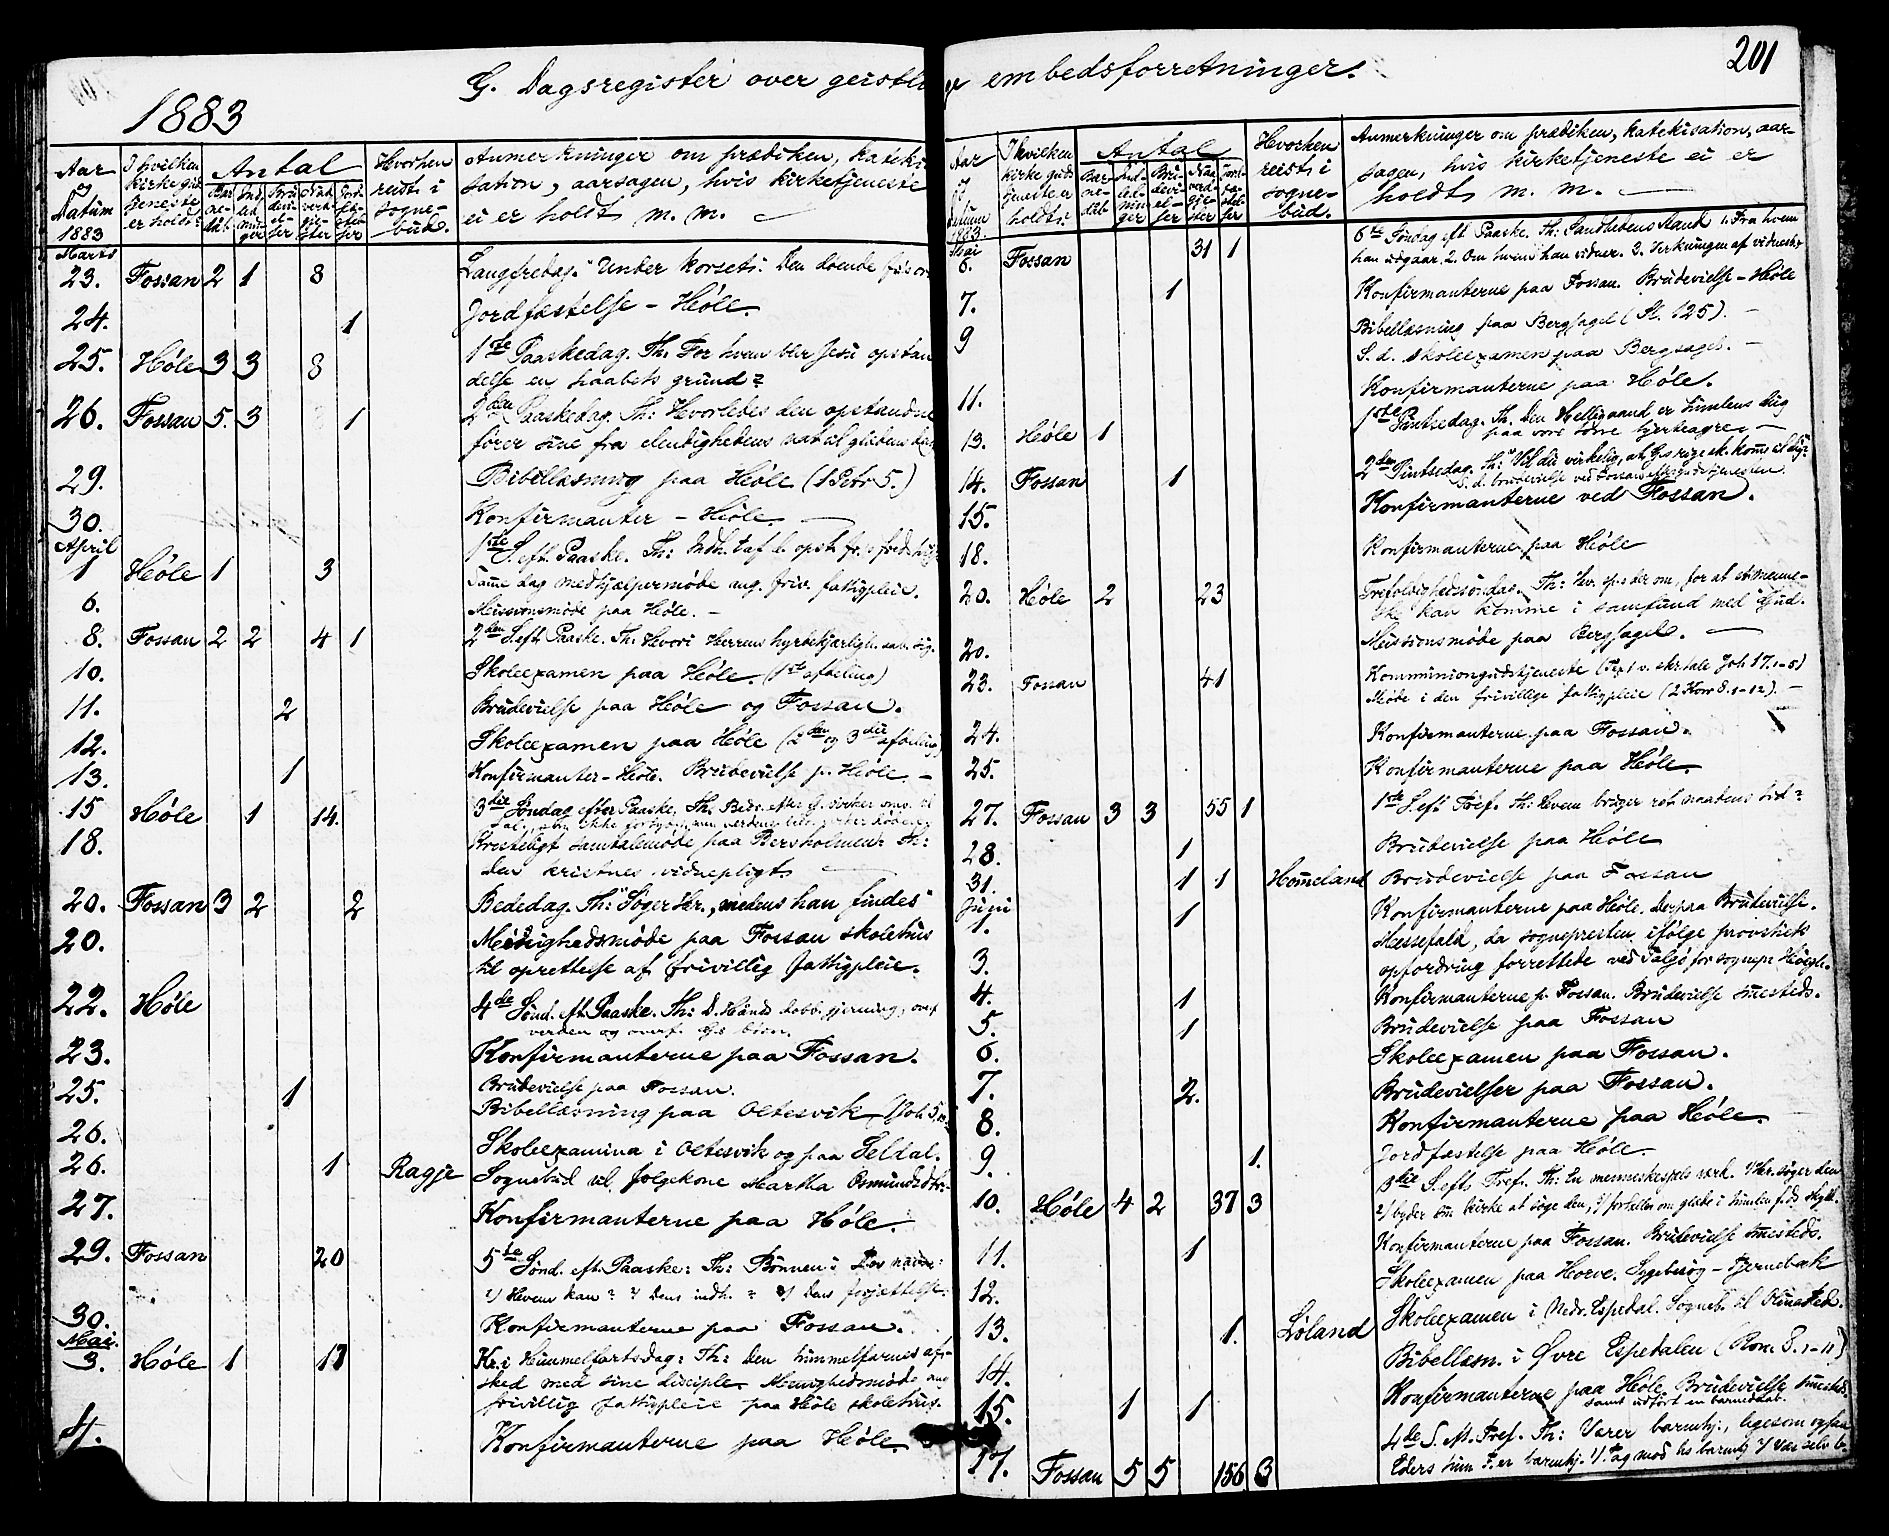 G. Dagsregister over geistlige embedsforretninger.
201
1883
Aar og Datum 1883
I hvilken kirke gudstjeneste er holdt.
Antal
Hvorhen reist i sognebud.
Anmerkninger om prædiken, kateki
sation, aarsagen, hvis kirketjeneste
ei er holdt m. m.
Marts
23. Fossan 2 1 8 Langfredag. "Under korset". Den døende
24. 1 Jordfæstelse - Høle.
25. Høle 3 3 8 1ste Paaskedag. Th: For hvem blir Jesu opstan
delse en haabets grund?
26. Fossan 5. 3 1 2den Paaskedag. Th: Hvorledes den opstandne
fører sine fra elendighedens nat til glædens
29. Bibellæsning paa Høle (1 Petr 5.)
30. Konfirmanter - Høle
April
1 Høle 1 3 1ste S. eft. Paaske. Th:
Samme dag medhjælpermøde ang. friv. fattigpleie.
6. Missionsmøde paa Høle. -
8. Fossan 2 2 4 1 2den S. eft. Paaske. Th: Hvori Herrens hyrdekjærligh.
10. Skoleexamen paa Høle. (1ste afdeling)
11. 2 Brudevielse paa Høle og Fossan.
12. Skoleexamen paa Høle (2den og 3die afdeling)
13. 1 Konfirmanter - Høle. Brudevielse p. Høle -
15 Høle 1 14. 3die Søndag efter Paaske. Th:
18. Kristeligt samtalemøde paa Bersholmen. Th:
Den kristnes vidnepligt
20. Fossan 3 2 2 Bededag. Th: "Søger Hr., medens han findes"
20. Menighedsmøde paa Fossan skolehus
til oprettelse af frivillig fattigpleie.
22. Høle 4de Sønd. eft. Paaske. Th: D. Hellig Aands dobb. gjerning, overf.
verden og overf. Gs børn.
23. Konfirmanterne paa Fossan.
25. 1 Brudevielse paa Fossan.
Bibellæsning paa Oltesvik (Joh 5,
26. Skoleexamina i Oltesvik og paa Seldal.
26. 1 Ragje Sognebud til folgekone Martha Osmundsdtr.
27. Konfirmanterne paa Høle.
29. Fossan 20 5te Sønd. eft. Paaske: Th: Bønnen i Jes navn:
1) Hvem kan? 2) Dens indh.? 3) Dens forjættelse.
30. Konfirmanterne paa Fossan.
Mai.
3. Høle 1 17 Kr. i Himmelfartsdag: Th: Den himmelfarnes af-
sked med sine disciple. Menighedsmøde ang
frivillig fattigpleie paa Høle skolehus.
4. Konfirmanterne paa Høle
Aar og Datum 1883.
I hvilken kirke gudstjeneste er holdt.
Antal
Hvorhen reist i sognebud.
Anmerkninger om prædiken, katekisation, aar-
sagen, hvis kirketjeneste ei er
holdt m. m.
Mai
6. Fossan 31 1 6te Søndag eft. Paaske. Th: Sandhedens Aand 1. Fra hvem
han udgaar. 2. Om hvem han vidner. 3. Virkningen af vidnesb.
7. 1 Konfirmanterne paa Fossan. Brudevielse - Høle
9 Bibellæsning paa Bergsagel (Sl. 125). -
S. d. skoleexamen paa Bergsagel. -
11. Konfirmanterne paa Høle.
13. Høle 1 1ste Pintsedag. Th. Den Helligaand er himlens dug
paa vore tørre hjerteagre. -
14. Fossan 1 2den Pintsedag. Th: "Vil du virkelig, at Gs rige sk. komme til dig?
S. d. brudevielse ved Fossan efter gudstjenesten.
15. Konfirmanterne ved Fossan.
18. Konfirmanterne paa Høle
20. Høle 2 23 Trefoldighedssøndag. Th: for at et menne-
ske kan komme i samfund med Gud.
20. Missionsmøde paa Bergsagel.
23. Fossan 41 Kommuniongudstjeneste (Text v. skrtale Joh 17.1-5)
Møde i den frivillige fattigpleie (2 Kor 8.1-12). -
24. Konfirmanterne paa Fossan.
25. Konfirmanterne paa Høle.
27. Fossan 3 3 55 1 1ste S. eft. Tref. Th: Hvem bruger ret naadens tid?
28. 1 Brudevielse paa Høle
31. 1 1 Hommeland Brudevielse paa Fossan
Juni
1. 1 Konfirmanterne paa Høle. Derpaa Brudevielse.
3. Messefald, da sognepresten ifølge provstiets
opfordring forrettede ved Talgø for sognepr. Høegh.
4. 1 Konfirmanterne p. Fossan. Brudevielse smesteds.
5. 1 Brudevielse paa Fossan
6. Skoleexamen paa Fossan.
7. 2. Brudevielser paa Fossan.
8. Konfirmanterne paa Høle.
9. 1. Jordfæstelse paa Høle.
10. Høle 4 2 37 3 3die S. eft. Tref. Th: En menneskesjels værd. 1) Kr. søger den
2) byder sin kirke at søge den, 3) fortæller om glæde i himlen f. ds skyld.
11. 1 Konfirmanterne paa Fossan. Brudevielse smesteds.
12. Skoleexamen paa Horve. Sygebesøg - Tjernebæk
13. 1. Løland Skoleexamen i Nedr. Espedal. Sogneb. til
14. Bibellæsn. i Øvre Espedalen (Rom. 8.1-11)
15. 1 1 Konfirmanterne paa Høle. Brudevielse smesteds.
samt udført en barnedaab.
17. Fossan 5 5 156 3 4de S. eft. Tref. Th: Værer barmhj., ligesom ogsaa
Eders himm. F. er barmhj.